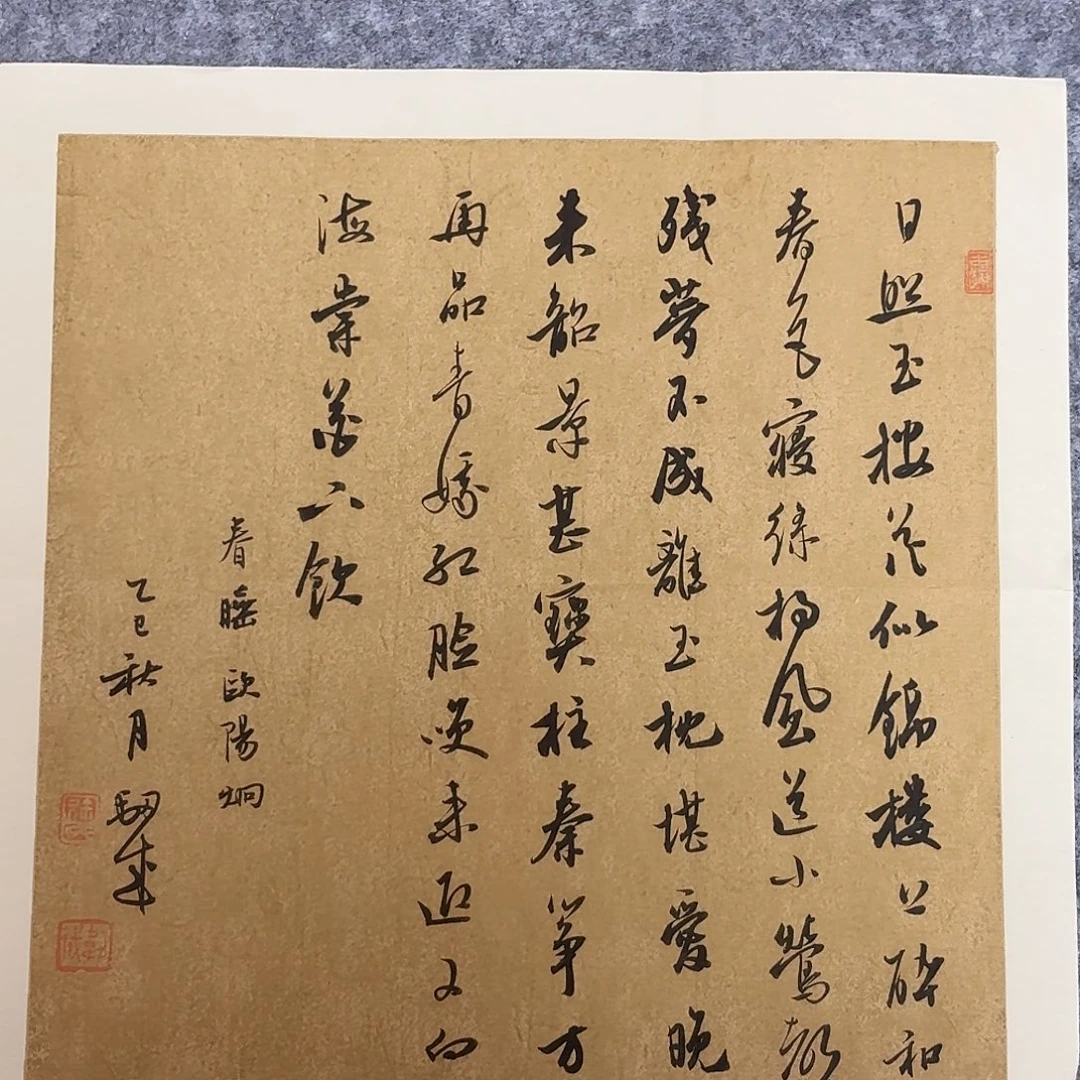 日照玉楼花似锦楼上醉和
春色寝绿杨风送小莺声
残梦不成離玉枕堪愛晚
来韶景甚寶柱秦筝方
再品青娥红脸笑来迎又向
海棠花下飲
春睡 欧陽炯
乙巳秋月